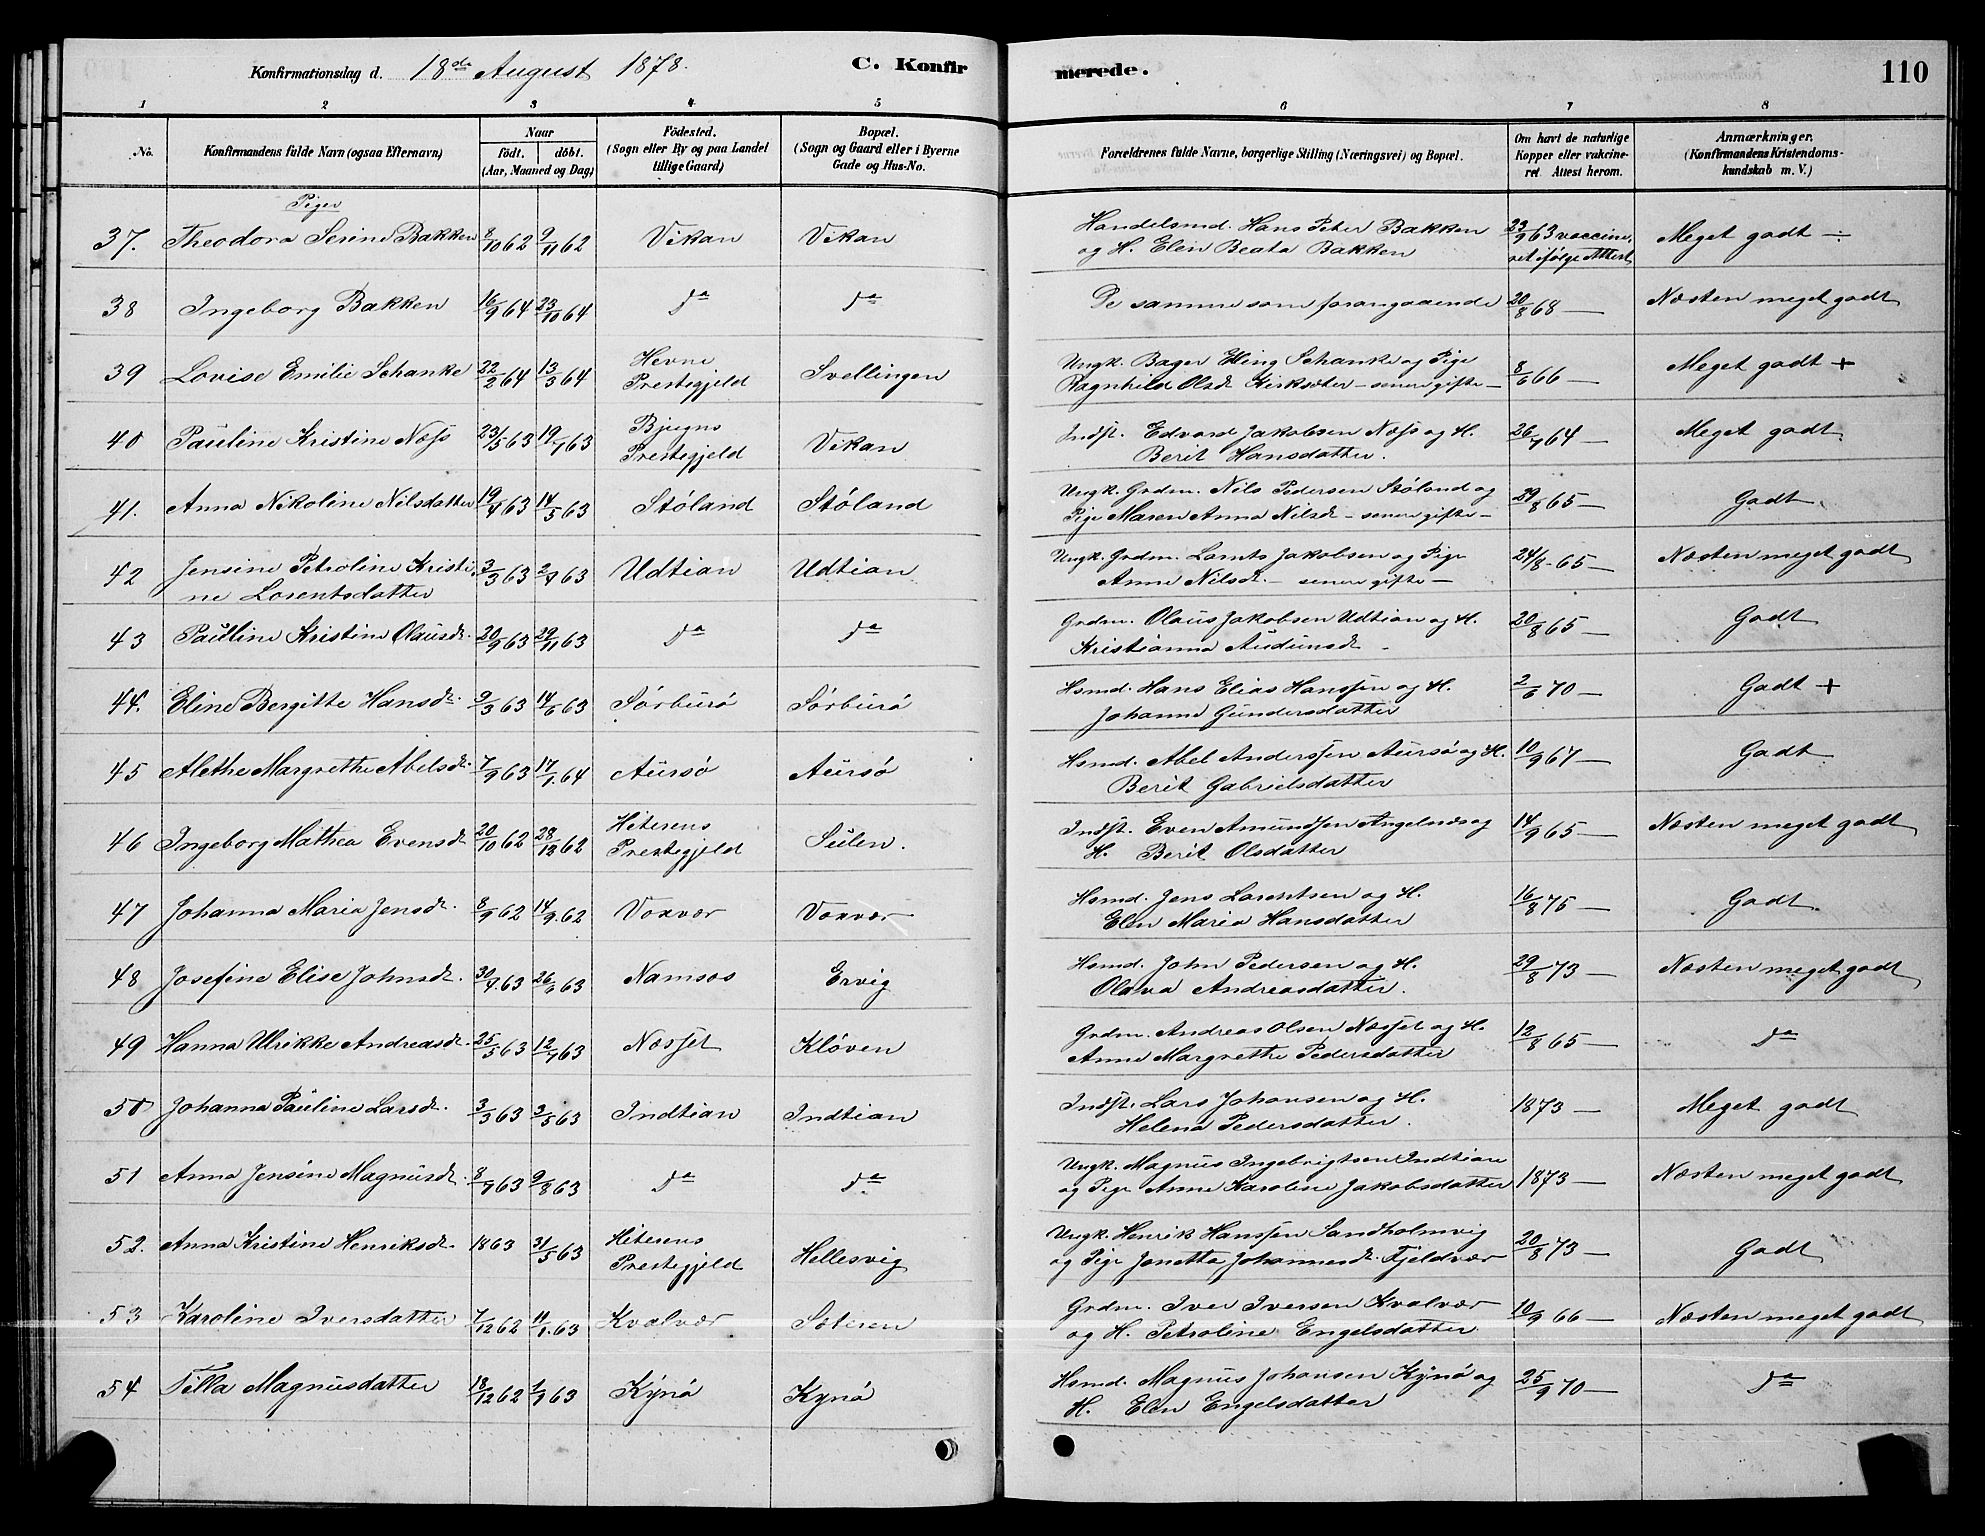 Konfirmationsdag d. 18de August 1878. C. Konfirmerede. 110
1 2 3 4 5 6 7 8
No. Konfirmandens fulde Navn (ogsaa Efternavn)
Naar
födt. döbt.
(Aar, Maaned og Dag)
Födested.
(Sogn eller By og paa Landet
tillige Gaard)
Bopæl.
(Sogn og Gaard eller i Byerne
Gade og Hus-No.
Forældrenes fulde Navne, borgerlige Stilling (Næringsvei) og Bopæl.
Om havt de naturlige
Kopper eller vakcine-
ret. Attest herom.
Anmærkninger.
(Konfirmandens Kristendoms-
kundskab m. V.)
Piger
37. Theodora Serine Bakken 8/10 62 9/11 62 Vikan Vikan Handelsmd. Hans Peter Bakken 23/9 63 vaccine- Meget godt ÷
og H. Elen Beata Bakken ret ifølge Attest
38 Ingeborg Bakken 16/9 64 23/10 64 da da De samme som forangaaende 20/8 68 — Næsten meget godt
39 Lovise Emilie Schanke 22/2 64 13/3 64 Hevne Svellingen Ungk. Bager Elling Schanke og Pige 8/6 66 — Meget godt +
Prestegjeld Ragnhild Olsd. Kirksæter – senere gifte –
40 Pauline Kristine Næss 23/5 63 19/7 63 Bjugns Vikan Indst. Edvard Jakobsen Næss og H. 26/7 64 — Meget godt
Prestegjeld Berit Hansdatter.
41. Anna Nikoline Nilsdatter 19/4 63 14/5 63 Stöland Stöland Ungk. Grdm. Nils Pedersen Stöland og 29/8 65 — Godt
Pige Maren Anna Nilsd. – senere gifte –
42 Jensine Petroline Kristi- 3/3 63 63 Udtian Udtian Ungk. Grdm. Jakobsen og Pige 24/8 65 — Næsten meget godt
ne Lorentsdatter Anne Nilsd. – senere gifte –
43 Pauline Kristine Olausd. 20/9 63 29/11 63 da da Grdm. Olaus Jakobsen Udtian og H. 20/8 65 — Godt
Kristianna Audunsd.
44. Eline Bergitte Hansd. 9/3 63 14/6 63 Sörburö Sörburö Hsmd. Hans Elias Hanssen og H. 2/6 70 — Godt +
Johanna Gundersdatter
45 Alethe Margrethe Abelsd. 7/9 63 17/1 64 Aursö Aursö Hsmd. Abel Anderssen Aursö og H. 10/9 67 — Godt
Berit Gabrielsdatter
46 Ingeborg Mathea Evensd. 20/10 62 28/12 62 Hiterens Sulen. Indst. Even Amundsen Angelnæs og 14/9 65 — Næsten meget godt
Prestegjeld H. Berit Olsdatter
47 Johanna Maria Jensd. 8/9 62 14/9 62 Voxvær Voxvær Hsmd. Jens Larentsen og H. 16/8 75 — Godt
Elen Maria Hansdatter
48 Josefine Elise Johnsd. 30/4 63 26/ 63 Namsos Ervig Hsmd. John Pedersen og H. 29/8 73 — Næsten meget godt
Olava Andreasdatter.
49 Hanna Ulrikke Andreasd. 25/5 63 12/7 63 Næsset Klöven Grdm. Andreas Olsen Næsset og H. 12/8 65 — da
Anne Margrethe Pedersdatter
50 Johanna Pauline Larsd. 3/3 63 3/5 63 Indtian Indtian Indst. Lars Johansen og H. 1873 — Meget godt
Helena Pedersdatter.
51 Anna Jensine Magnusd. 8/7 63 9/8 63 da da Ungk. Magnus Ingebrigtsen Indtian 1873 — Næsten meget godt
og Pige Anne Karoline Jakobsdatter
52. Anna Kristine Henriksd. 1863 31/5 63 Hiterens Hellesvig Ungk. Henrik Hanssen Sandholmvig 20/8 73 — Godt
Prestegjeld og Pige Jonetta Johannesd. Fjeldvær
53 Karoline Iversdatter 7/12 62 11/1 63 Kvalvær Sæteren Grdm. Iver Iversen Kvalvær 10/9 66 — Næsten meget godt
og H. Petroline Engelsdatter
54 Tilla Magnusdatter 18/12 62 63 Kynö Kynö Hsmd. Magnus Johansen Kynö og 25/9 70 — da
H. Elen Engelsdatter